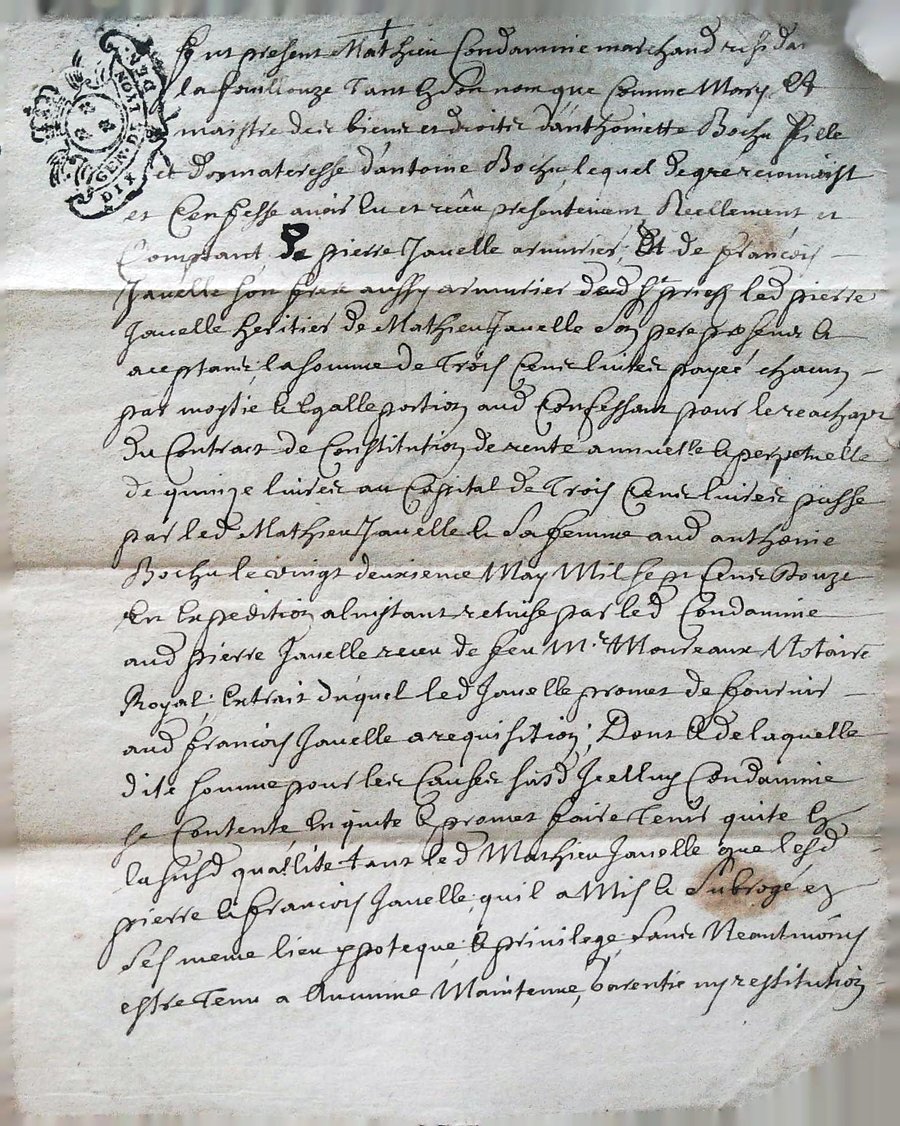 GEN. DE LION
DIX DEN
Fut present Mathieu Condamine marchand residan
la fouillouze tant En son nom que Comme Mary Et
maistre des biens et droits d'anthoinette Bochu fille
et Donnateresse d'antoine Bochu, lequel de gre reconnoist
et Confesse avoir Eu et receu presentement Reellement et
Comptant De pierre Javelle armurier, Et de françois
Javelle son frere aussy armurier dud St priest led pierre
Javelle heritier de Mathieu Javelle Son pere presens Et
aceptans, la somme de Trois Cens livres payée chacun
par moytié Et Egalle portion aud Confessant pour le reachapt
du Contract de Constitution de rente annuelle Et perpetuelle
de quinze livres au Capital de Trois Cens livres passe
par led Mathieu Javelle Et Sa femme aud anthoine
Bochu le vingt deuxieme May Mil sept Cens Douze
En Expedition a l'instant remise par led Condamine
aud pierre Javelle receu de feu Mr Moureaux Notaire
Royal; Extrait duquel led Javelle promet de fournir
aud francois Javelle a requisition; Dont Et de laquelle
dite somme pour les Causes susd Icelluy Condamine
se Contente En quite Et promet faire Tenir quite En
la susd qualite tant led Mathieu Javelle que lesd
pierre Et francois Javelle, qu'il a Mis Et Subrogé en
Ses meme lieu ypoteque, Et privilege, Sans Neantmoins
estre Tenu a Aucunne Maintenue, Garentie ny restitution